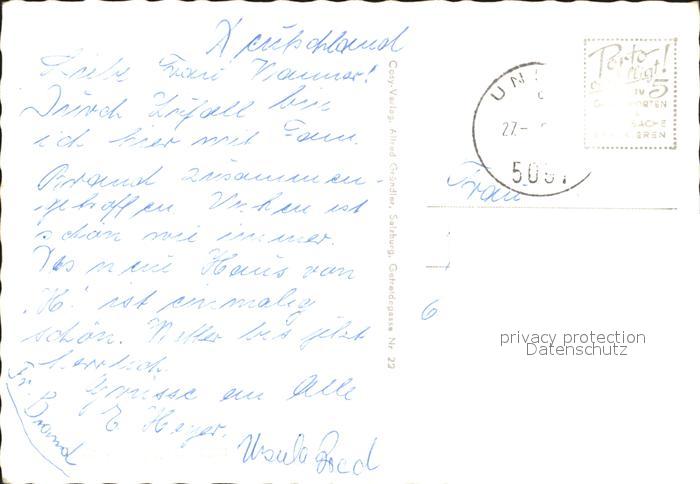 Deutschland
Liebe Frau Wanner!
Durch Zufall bin
ich hier mit Fam.
Brand zusammen-
getroffen. Unken ist
schön wie immer.
Das neue Haus von
"H." ist einmalig
schön. Wetter bis jetzt
herrlich.
Grüsse an Alle
E. Heyer.
Fr. Brand
Ursula Bred
Cosy-Verlag, Alfred Gründler, Salzburg, Getreidegasse Nr. 22
UN
27-
5091
Porto
IV 5
Frau
6
privacy protection
Datenschutz